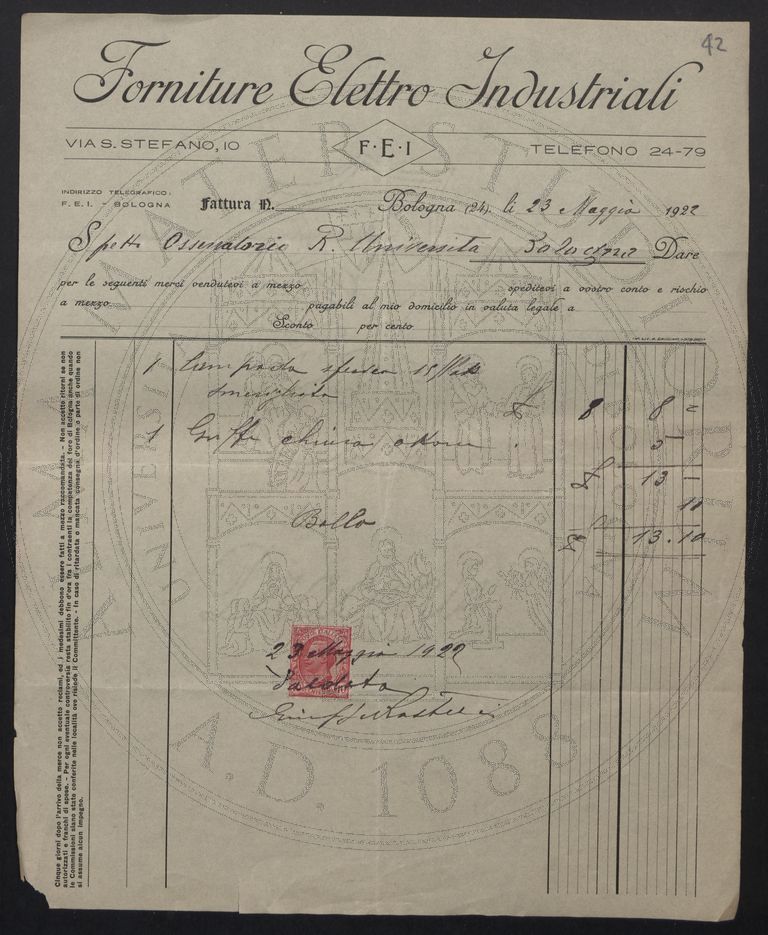 42
Forniture Elettro Industriali
VIA S. STEFANO, 10
F·E·I
TELEFONO 24-79
INDIRIZZO TELEGRAFICO:
F. E. I. - BOLOGNA
Fattura N.
Bologna (24). li 23 Maggio 1922
Spett. Osservatorio R. Università Bologna Dare
per le seguenti merci vendutevi a mezzo
speditevi a vostro conto e rischio
a mezzo
pagabili al mio domicilio in valuta legale a
Sconto per cento
1 Lampada sferica 15 Watt
smerigliata £ 8 8 =
1 Griffe chiusa ottone . 5 -
£ 13 -
Bollo 10
£ 13.10
23 Maggio 1922
Saldato
Cinque giorni dopo l'arrivo della merce non accetto reclami, ed i medesimi debbono essere fatti a mezzo raccomandata. - Non accetto ritorni se non
autorizzati e franchi di spese. - Per ogni eventuale controversia resta stabilito fin d'ora fra i contraenti la competenza del foro di Bologna anche quando
le Commissioni siano state conferite nelle località ove risiede il Committente. - In caso di ritardata o mancata consegna d'ordine o parte di ordine non
si assume alcun impegno.
ALMA MATER STUDIORUM
A.D. 1088